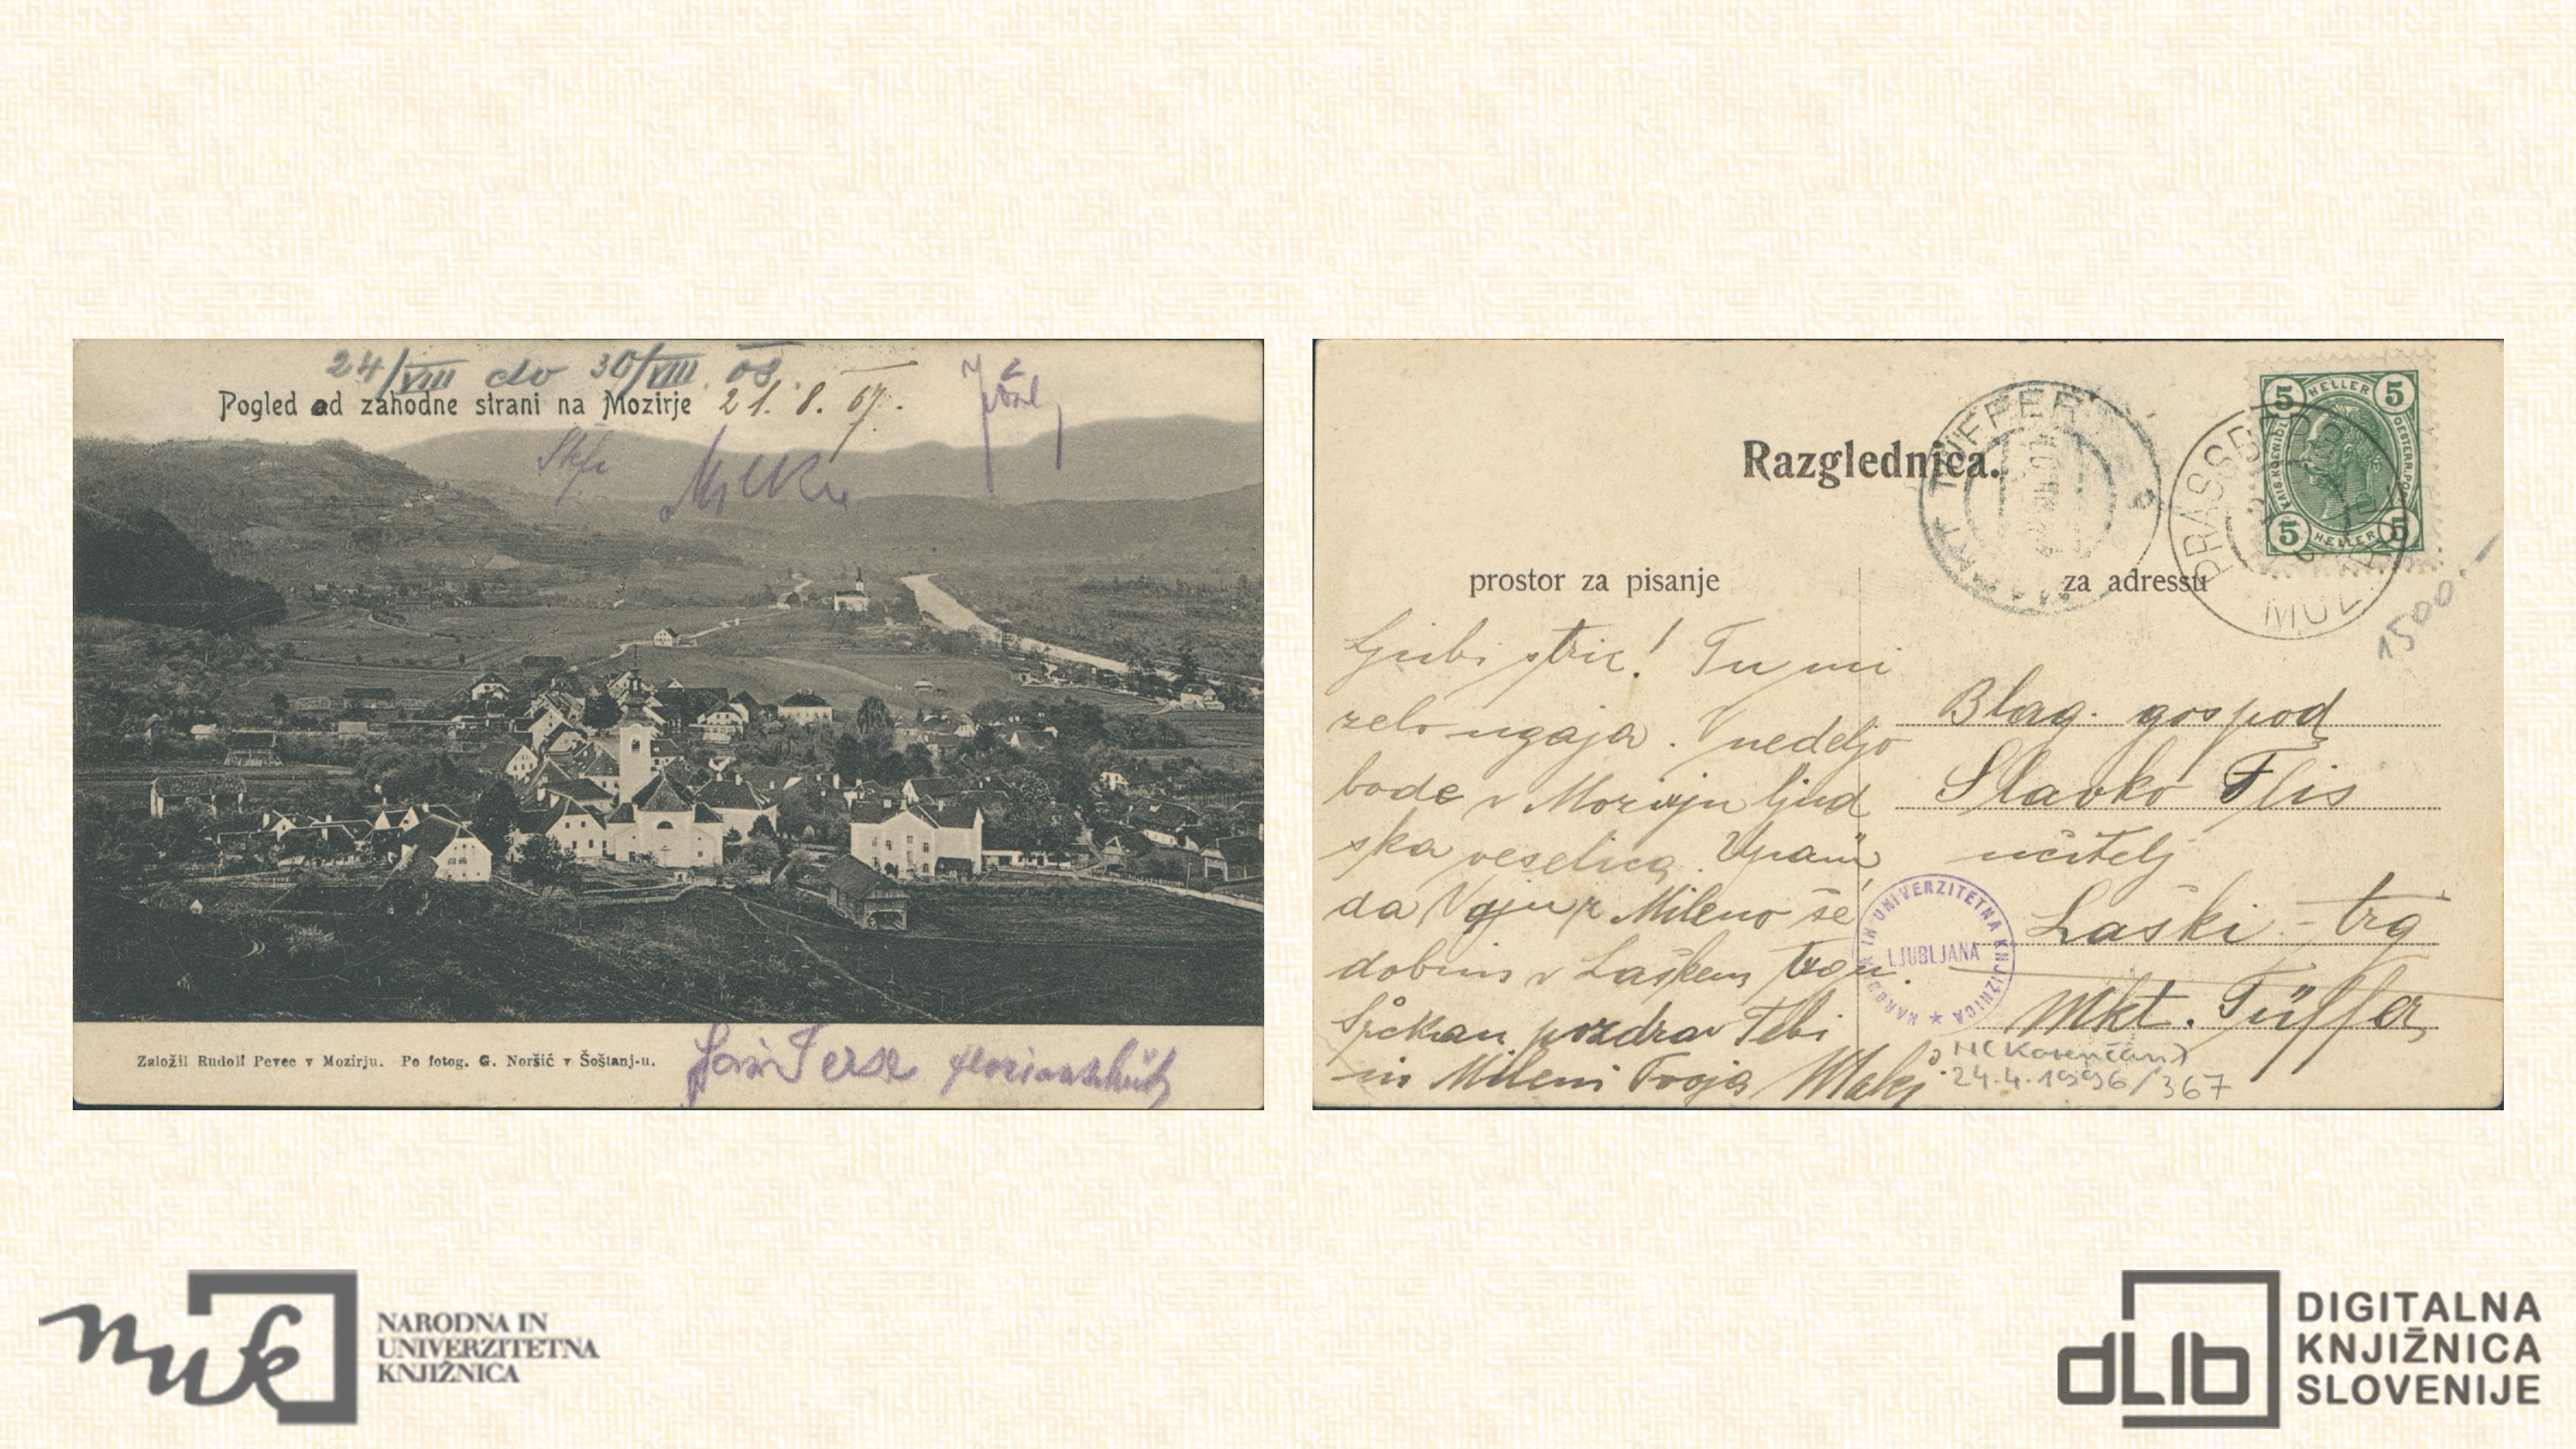 24/VIII do 30/VIII. 08.
Pogled od zahodne strani na Mozirje 21. 8. 07.
Založil Rudolf Pevec v Mozirju. Po fotog. G. Noršić v Šoštanj-u.
Razglednica.
MARKT TÜFFER
5 HELLER 5
KAIS. KOENIGL. OESTERR. POST
5 HELLER 5
PRASSBERG
MOZ
prostor za pisanje
za adressu
1500.-
Ljubi stric! Tu mi
zelo ugaja. V nedeljo
bode v Mozirju ljud
ska veselica. Upam,
da Vaju z Mileno še
dobim v Laškem trgu.
Srčkan pozdrav Tebi
in Mileni Tvoja
Blag. gospod
Slavko Flis
učitelj
Laški-trg
Mkt. Tüffer
NARODNA IN UNIVERZITETNA KNJIŽNICA ★
LJUBLJANA
24.4.1996/367
nuk
NARODNA IN
UNIVERZITETNA
KNJIŽNICA
dLib
DIGITALNA
KNJIŽNICA
SLOVENIJE